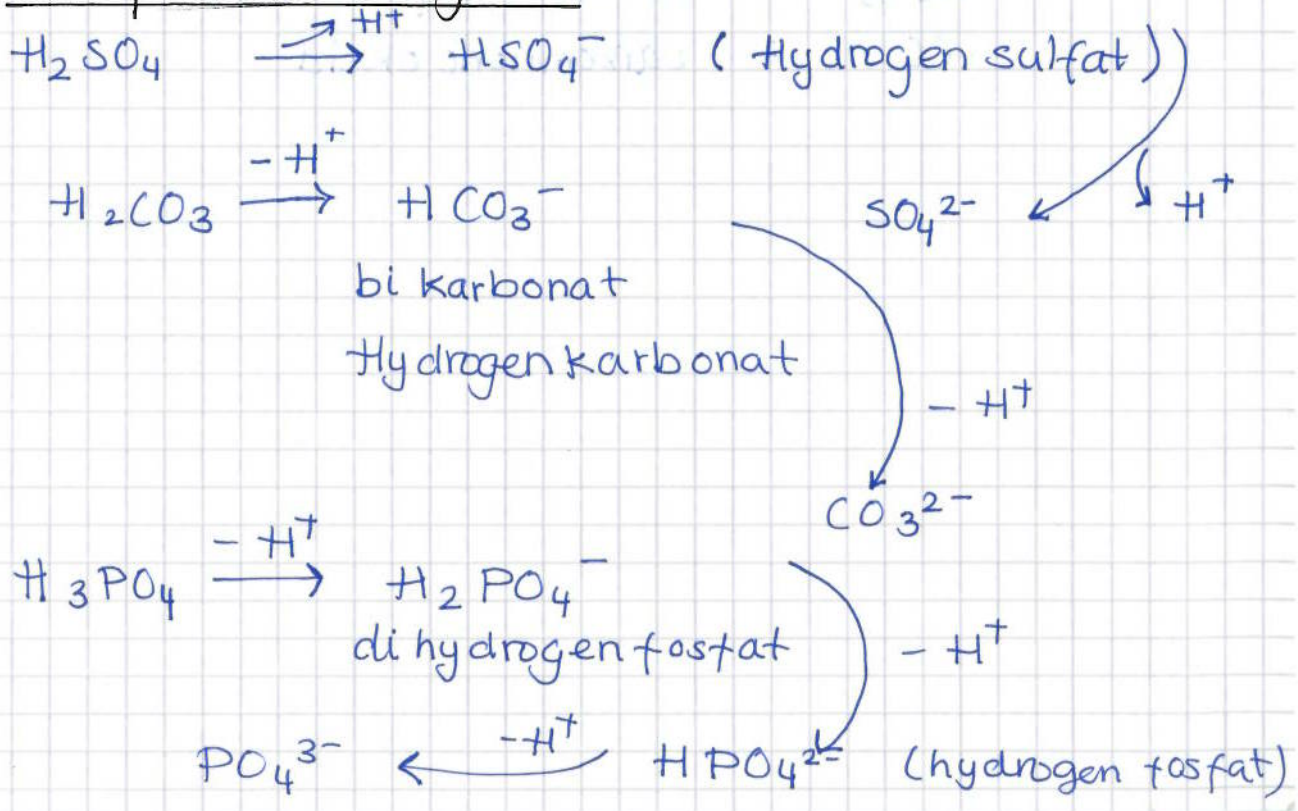 H₂SO₄ → H⁺ HSO₄⁻ (Hydrogen sulfat)
H₂CO₃ -H⁺→ HCO₃⁻ SO₄²⁻ H⁺
bi karbonat
Hydrogenkarbonat
- H⁺
CO₃²⁻
H₃PO₄ -H⁺→ H₂PO₄⁻
di hydrogen fosfat - H⁺
PO₄³⁻ ←-H⁺ HPO₄²⁻ (hydrogen fosfat)